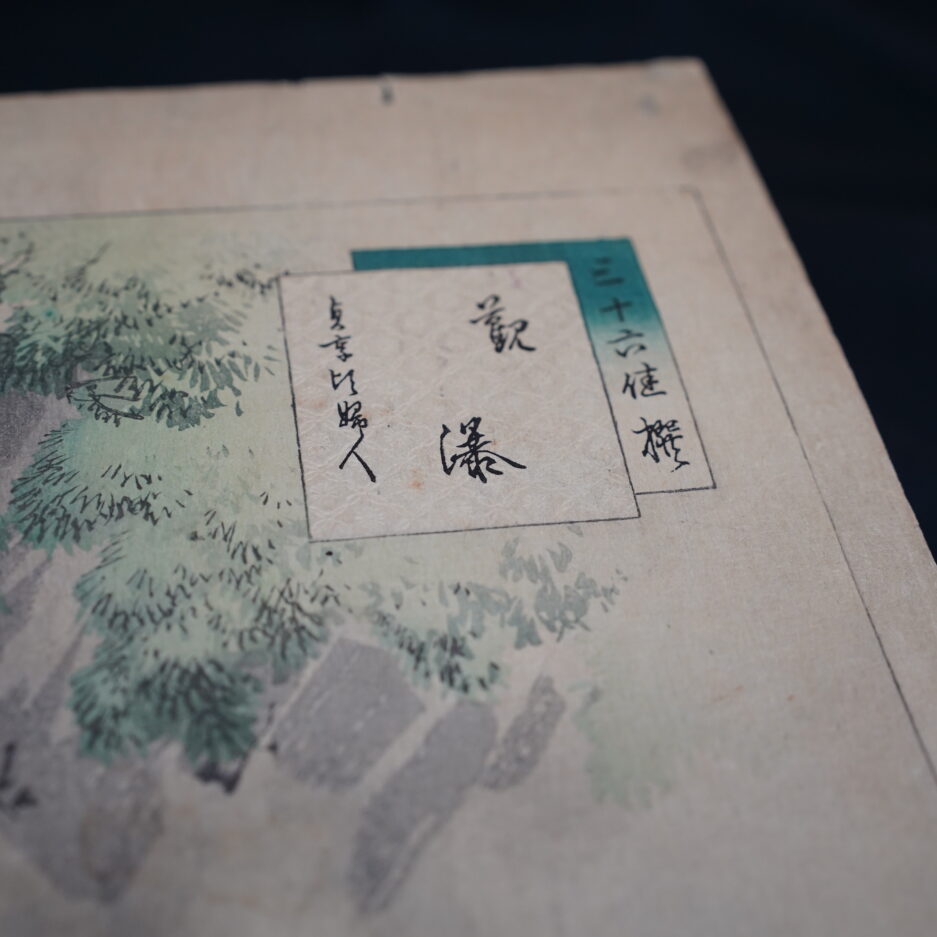 三十六佳撰
觀瀑
貞享頃婦人